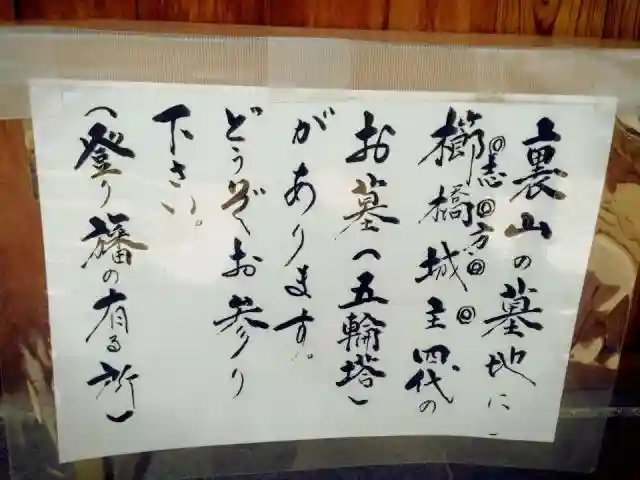 裏山の墓地に
◎志◎方◎◎
櫛橋城主四代の
お墓(五輪塔)
があります。
どうぞお参り
下さい。
(登り旛の有る所)